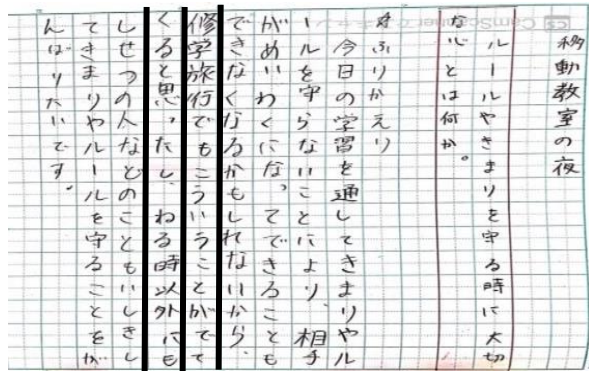 移動教室の夜
ルールやきまりを守る時に大切
な心とは何か。
ふりかえり
今日の学習を通してきまりやル
ールを守らないことにより、相手
がめいわくになってできることも
できなくなるかもしれないから、
修学旅行でもこういうことがでて
くると思ったし、ねる時以外にも
しせつの人などのこともいしきし
てきまりやルールを守ることをが
んばりたいです。